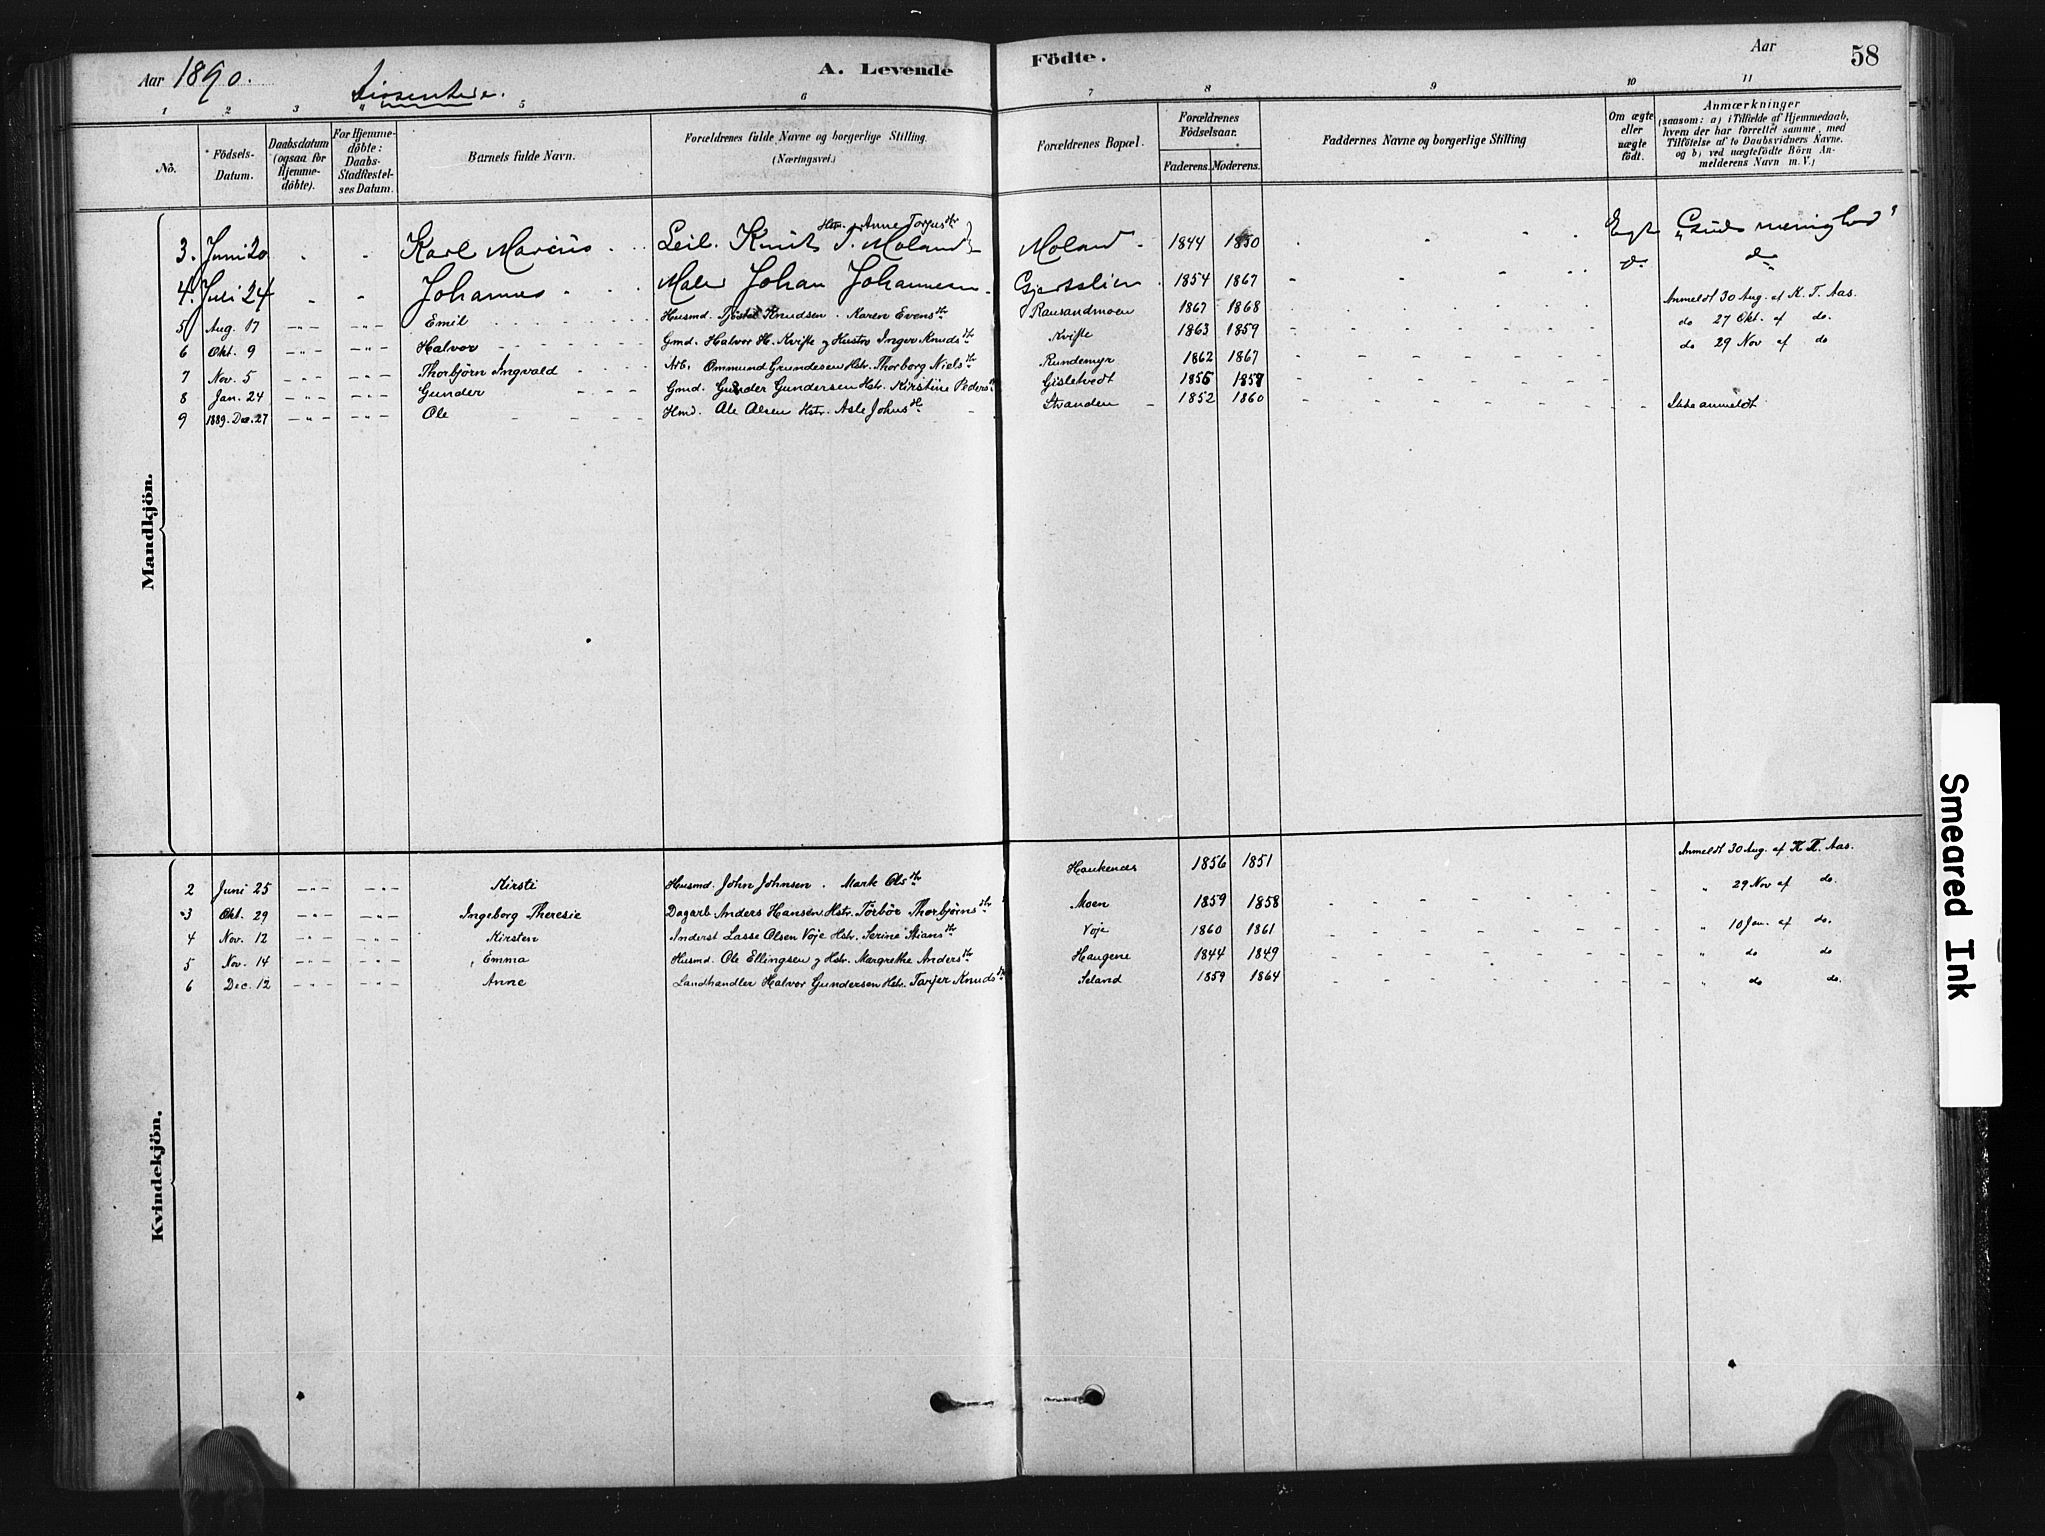 Aar 1890. Dissentere. A. Levende Födte. Aar 58
1 2 3 4 5 6 7 8 9 10 11
No.
Födsels-Datum.
Daabsdatum (ogsaa for Hjemme-döbte).
For Hjemme-döbte: Daabs-Stadfæstel-ses Datum.
Barnets fulde Navn.
Forældrenes fulde Navne og borgerlige Stilling. (Næringsvei.)
Forældrenes Bopæl.
Forældrenes Födselsaar.
Faderens. Moderens.
Faddernes Navne og borgerlige Stilling
Om ægte eller uægte födt.
Anmærkninger
(saasom: a) i Tilfælde af Hjemmedaab, hvem der har forrettet samme, med Tilföielse af to Daabsvidners Navne, og b) ved uægtefödte Börn An-melderens Navn m. V.)
Mandkjön.
3. Juni 20 Karl Marius Leil. Knut T. Moland Hstr. Anne Torjusdtr Moland 1844 1850 Egte "Guds menighed"
4. Juli 24 Johannes Maler Johan Johannesen 1854 1867 do do
5 Aug. 17 Emil Husmd. Knudsen. Karen Evensdtr Rausandmoen 1867 1868 Anmeldt 30 Aug. af K. T. Aas.
6 Okt. 9 Halvor Gmd. Halvor H. Kvifte og Hustro Inger Knudsdtr Kvifte 1863 1859 do 27 Okt. af do.
7 Nov. 5 Thorbjörn Ingvald Arb. Ommund Grundesen Hstr. Thorborg Nielsdtr Rundemyr 1862 1867 do 29 Nov af do
8 Jan. 24 Gunder Gmd. Gunder Gundersen Hstr. Kirstine Pedersdtr Gisletvedt 1856 1858
9 1889. Dec. 27 Ole Hmd. Ole Olsen Hstr. Asle Johnsdtr Stranden 1852 1860 Ikke anmeldt
Kvindekjön.
2 Juni 25 Kirsti Husmd. John Johnsen. Mark Olsdtr Haukenes 1856 1851 Anmeldt 30 Aug. af K T. Aas.
3 Okt. 29 Ingeborg Theresie Dagarb Anders Hansen Hstr. Törbör Thorbjørnsdtr Moen 1859 1858 " 29 Nov af do.
4 Nov. 12 Kirsten Anderst Lasse Olsen Voje Hstr. Serine Stiansdtr Voje 1860 1861 " 10 Jan. af do.
5 Nov. 14 Emma Husmd. Ole Ellingsen og Hstr. Margrethe Andersdtr Haugene 1844 1849 " do do
6 Dec. 12 Anne Landhandler Halvor Gundersen Hstr. Tarjer Knudsdtr Seland 1859 1864 " do do.
Smeared Ink